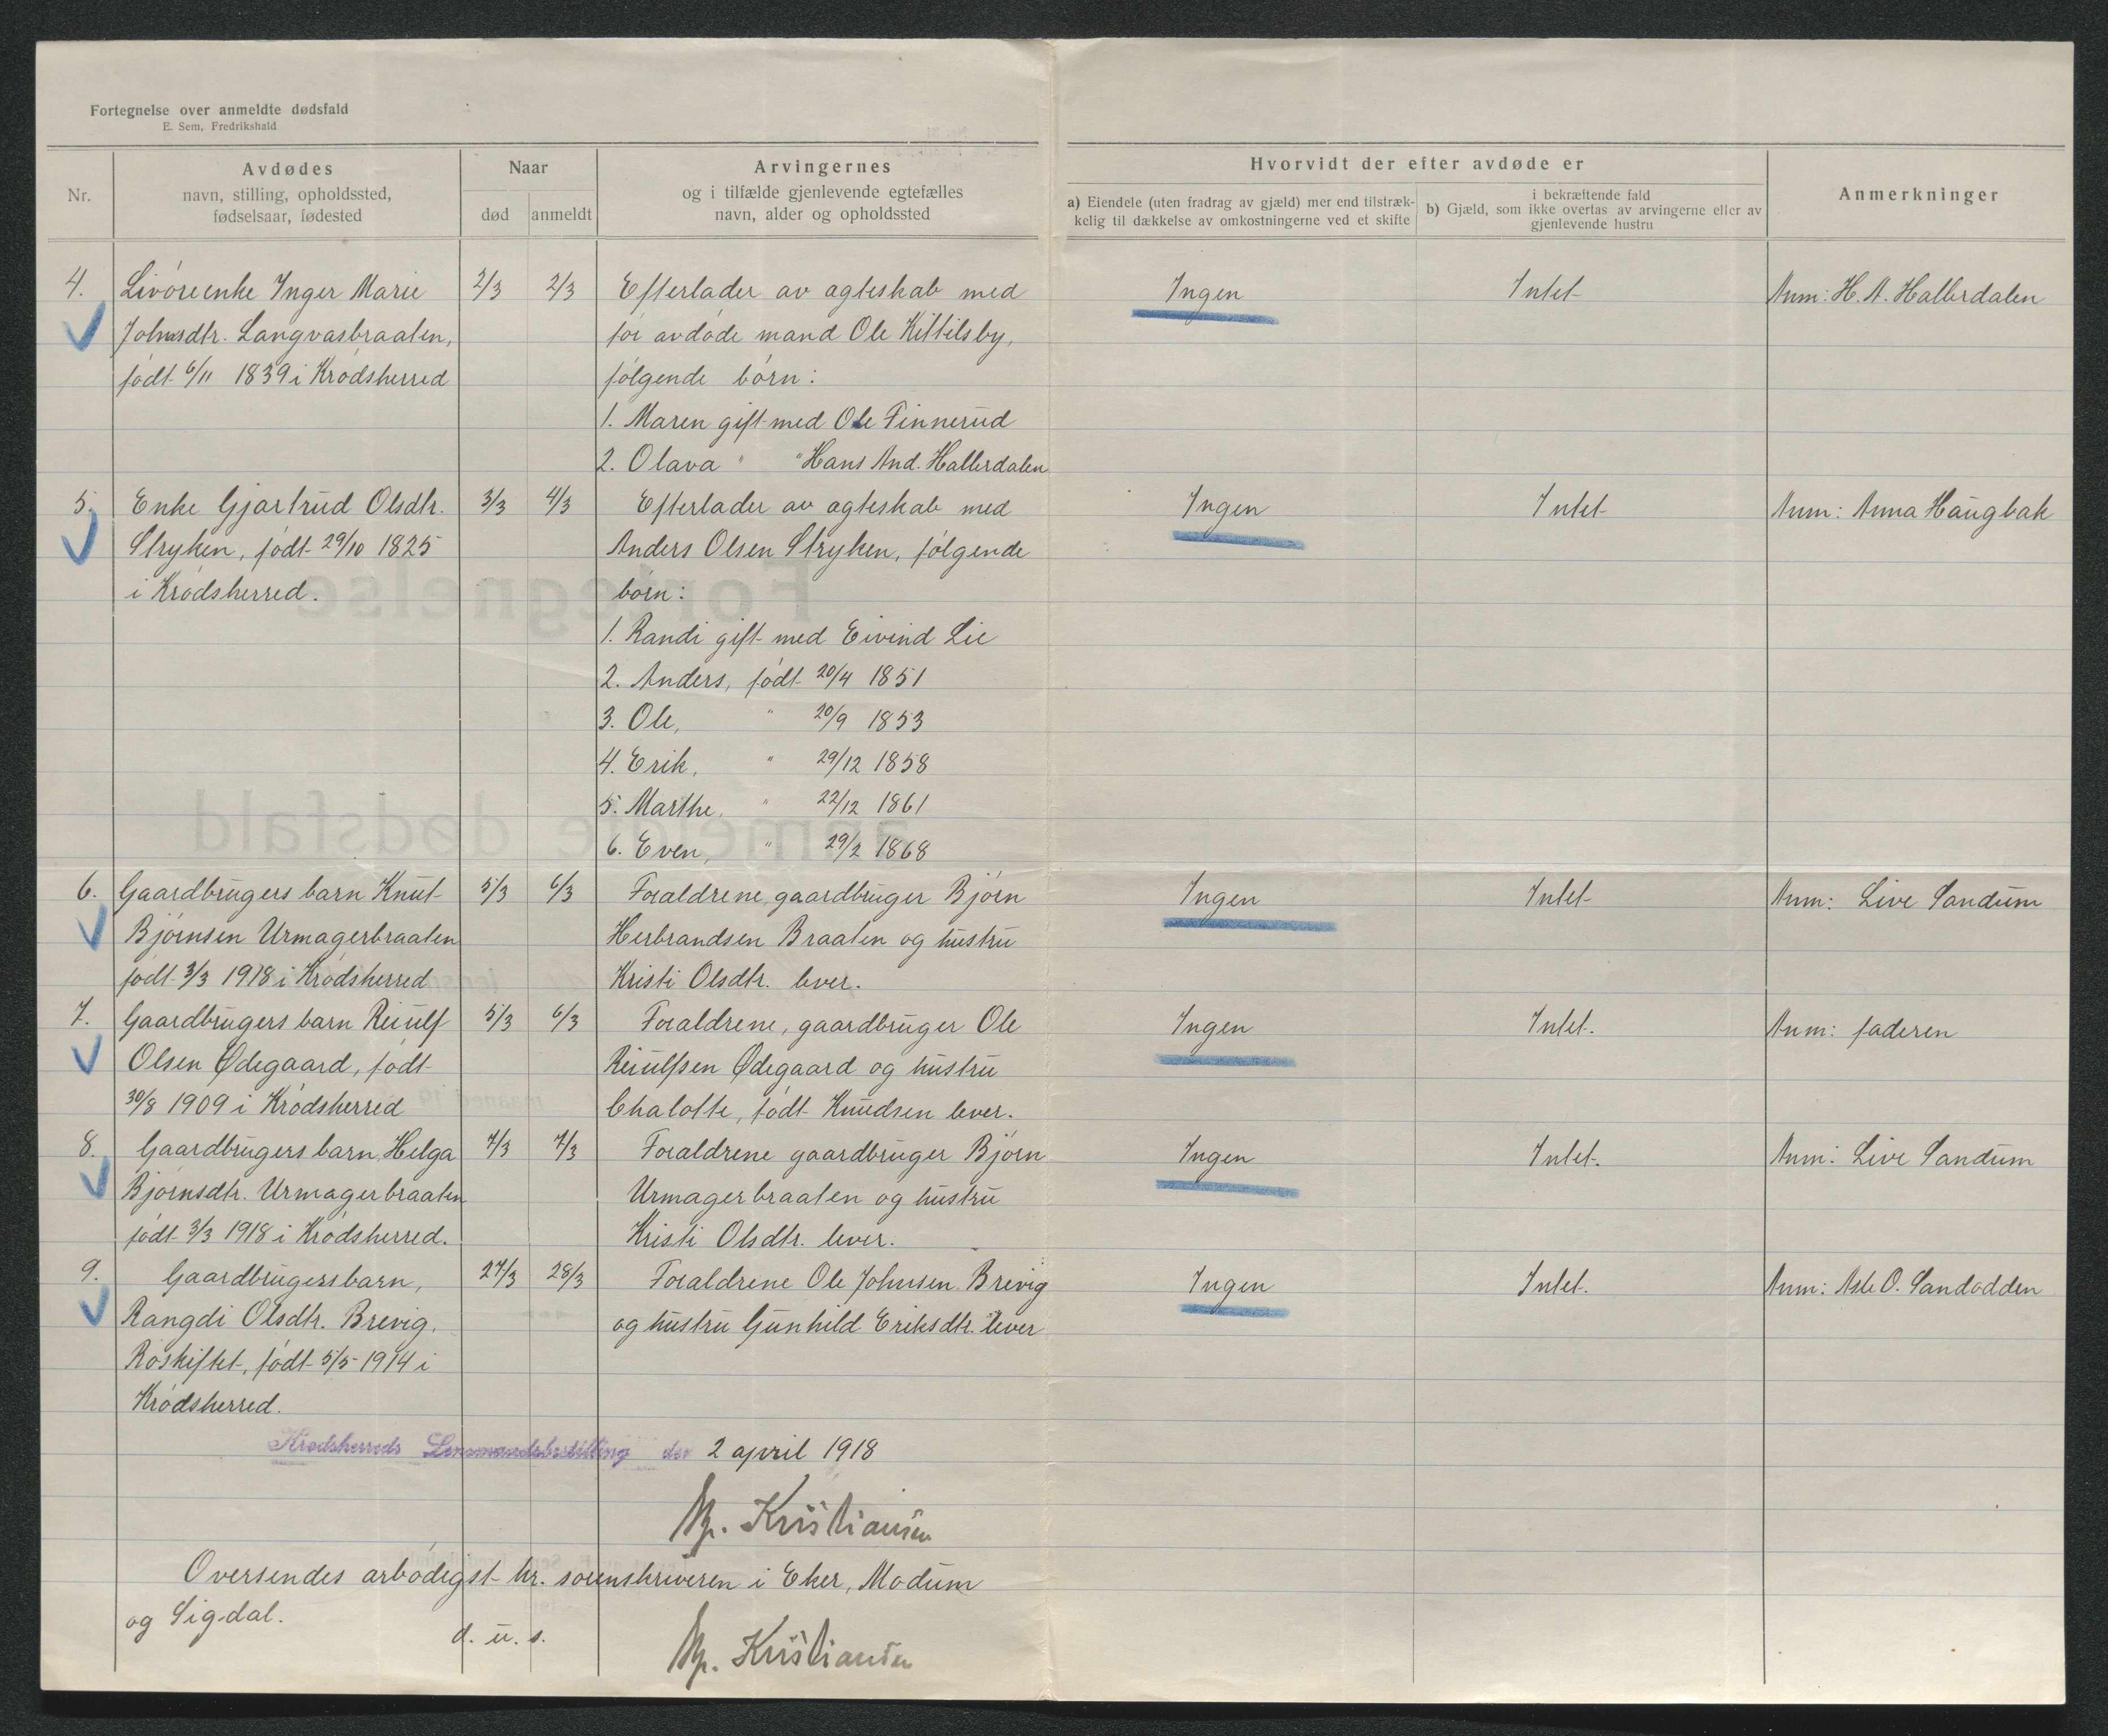 Fortegnelse over anmeldte dødsfald
E. Sem, Fredrikshald
Nr.
Avdødes
navn, stilling, opholdssted,
fødselsaar, fødested
Naar
død
anmeldt
Arvingernes
og i tilfælde gjenlevende egtefælles
navn, alder og opholdssted
Hvorvidt der efter avdøde er
a) Eiendele (uten fradrag av gjæld) mer end tilstræk-
kelig til dækkelse av omkostningerne ved et skifte
i bekræftende fald
b) Gjæld, som ikke overtas av arvingerne eller av
gjenlevende hustru
Anmerkninger
4.
Livøreenke Inger Marie
Johnsdtr. Langvasbraaten,
født 6/11 1839 i Krødsherred
2/3
2/3
Efterlader av ægteskab med
før avdøde mand Ole Kittilsby,
følgende børn:
1. Maren gift med Ole Finnerud
2. Olava " " Hans And. Hallerdalen
Ingen
Intet
Anm: H. A. Hallerdalen
5.
Enke Gjærtrud Olsdtr.
Stryken, født 29/10 1825
i Krødsherred.
3/3
4/3
Efterlader av ægteskab med
Anders Olsen Stryken, følgende
børn:
1. Randi gift med Eivind Lie
2. Anders, født 20/4 1851
3. Ole, " 20/9 1853
4. Erik, " 29/12 1858
5. Marthe, " 22/12 1861
6. Even, " 29/2 1868
Ingen
Intet
Anm: Anna Haugbak
6.
Gaardbrugers barn Knut
Bjørnsen Urmagerbraaten
født 3/3 1918 i Krødsherred
5/3
6/3
Forældrene, gaardbruger Bjørn
Herbrandsen Braaten og hustru
Kristi Olsdtr. lever.
Ingen
Intet
Anm: Live Sandum
7.
Gaardbrugers barn Reiulf
Olsen Ødegaard, født
30/8 1909 i Krødsherred
5/3
6/3
Forældrene, gaardbruger Ole
Reiulfsen Ødegaard og hustru
Chalotte, født Knudsen lever.
Ingen
Intet.
Anm: faderen
8.
Gaardbrugers barn Helga
Bjørnsdtr. Urmagerbraaten
født 3/3 1918 i Krødsherred.
7/3
7/3
Forældrene gaardbruger Bjørn
Urmagerbraaten og hustru
Kristi Olsdtr. lever.
Ingen
Intet.
Anm: Live Sandum
9.
Gaardbrugersbarn,
Rangdi Olsdtr. Brevig,
Røskiftet, født 5/5 1914 i
Krødsherred.
27/3
28/3
Forældrene Ole Johnsen Brevig
og hustru Gunhild Eriksdtr. lever
Ingen
Intet.
Anm: Asle O. Sandodden
Krødsherreds Lensmandsbestilling den 2 april 1918
Kristiansen
Oversendes ærbødigst hr. sorenskriveren i Eker, Modum
og Sigdal.
d. u. s.
Kristiansen